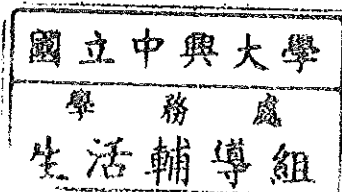 國立中興大學
學務處
生活輔導組